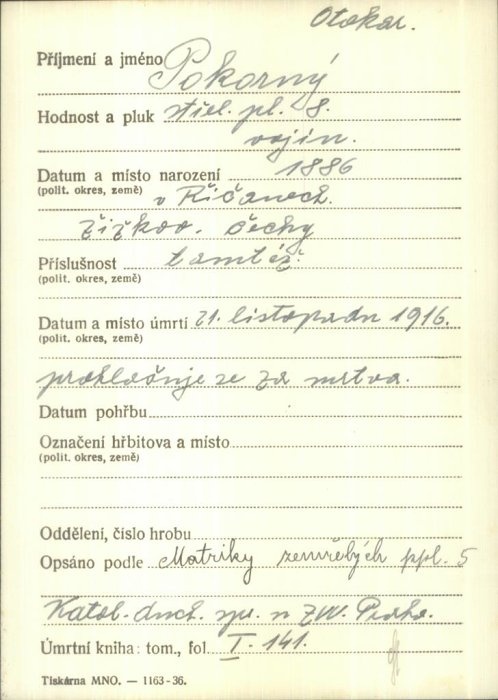 Otokar.
Příjmení a jméno Pokorný
Hodnost a pluk střel. pl. 8.
vojín.
Datum a místo narození 1886
(polit. okres, země) v Říčanech.
Žižkov. Čechy
Příslušnost tamtéž.
(polit. okres, země)
Datum a místo úmrtí 21. listopadu 1916.
(polit. okres, země)
prohlašuje se za mrtva.
Datum pohřbu
Označení hřbitova a místo
(polit. okres, země)
Oddělení, číslo hrobu
Opsáno podle Matriky zemřelých ppl. 5
Katol. duch. spr. n ZW. Praha.
Úmrtní kniha: tom., fol. I - 141.
Tiskárna MNO. — 1163-36.